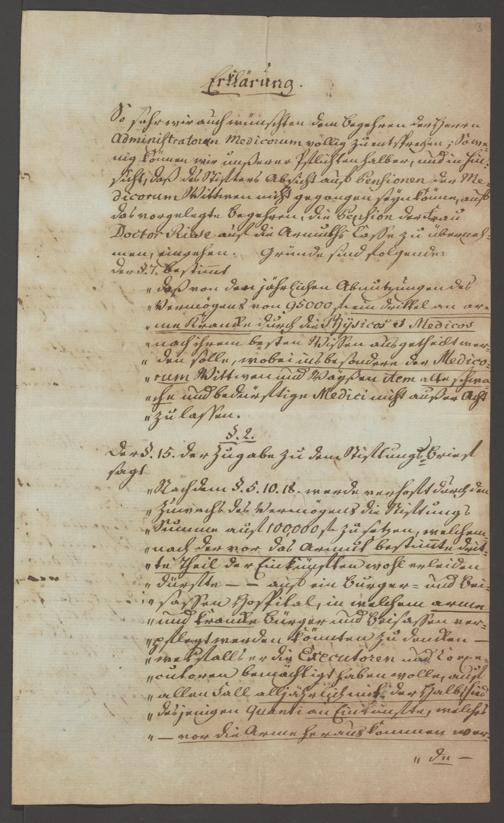 3
Erklärung.
So sehr wir auch wünschten dem Begehren der Herren
Administratoren Medicorum völlig zu entsprechen; So we-
nig können wir unserer Pflichten halber, und in Hin-
sicht, daß des Stifters Absicht auf Pensionen der Me-
dicorum Wittwen nicht gegangen seyn könne, auf
das vorgelegte Begehren, die Pension der Frau
Doctor auf die Armuths Casse zu überneh-
men, eingehen. Gründe sind folgende:
der §. 7. bestimmt
„daß von den jährlichen Abnutzungen des
„Vermögens von 95000 f. ein drittel an ar-
„me Krancke durch die Physicos et Medicos
„nach ihrem besten Wissen ausgetheilt wer-
„den solle, wobei insbesondere der Medico-
„rum Wittwen und Waysen item alte schwa-
„che und bedürftige Medici nicht außer Acht
„zu lassen.
§. 2.
Der §. 15. der Zugabe zu dem Stiftungs-Brief
sagt
„Nachdem §. 5. 10. 18. werde verhofft durch den
„Zuwachs des Vermögens die Stiftungs
„Summe auf 100,000 f. zu setzen, welchem
„nach der vor das Armuth bestimmte drit-
„te Theil der Einkünften wohl erleiden
„dürffte — — auf ein Bürger- und Bei-
„sassen Hospital, in welchem arme
„und krancke Bürger und Beisassen ver-
„pflegt werden könnten zu dencken —
„ er die Executoren und
„cutoren bemächtigt haben wolle, auf
„allen Fall alljährlich mit der Halbschied
„desjenigen Quanti an Einkünfte, welches
„— vor die Arme herauskommen wer-
„de —